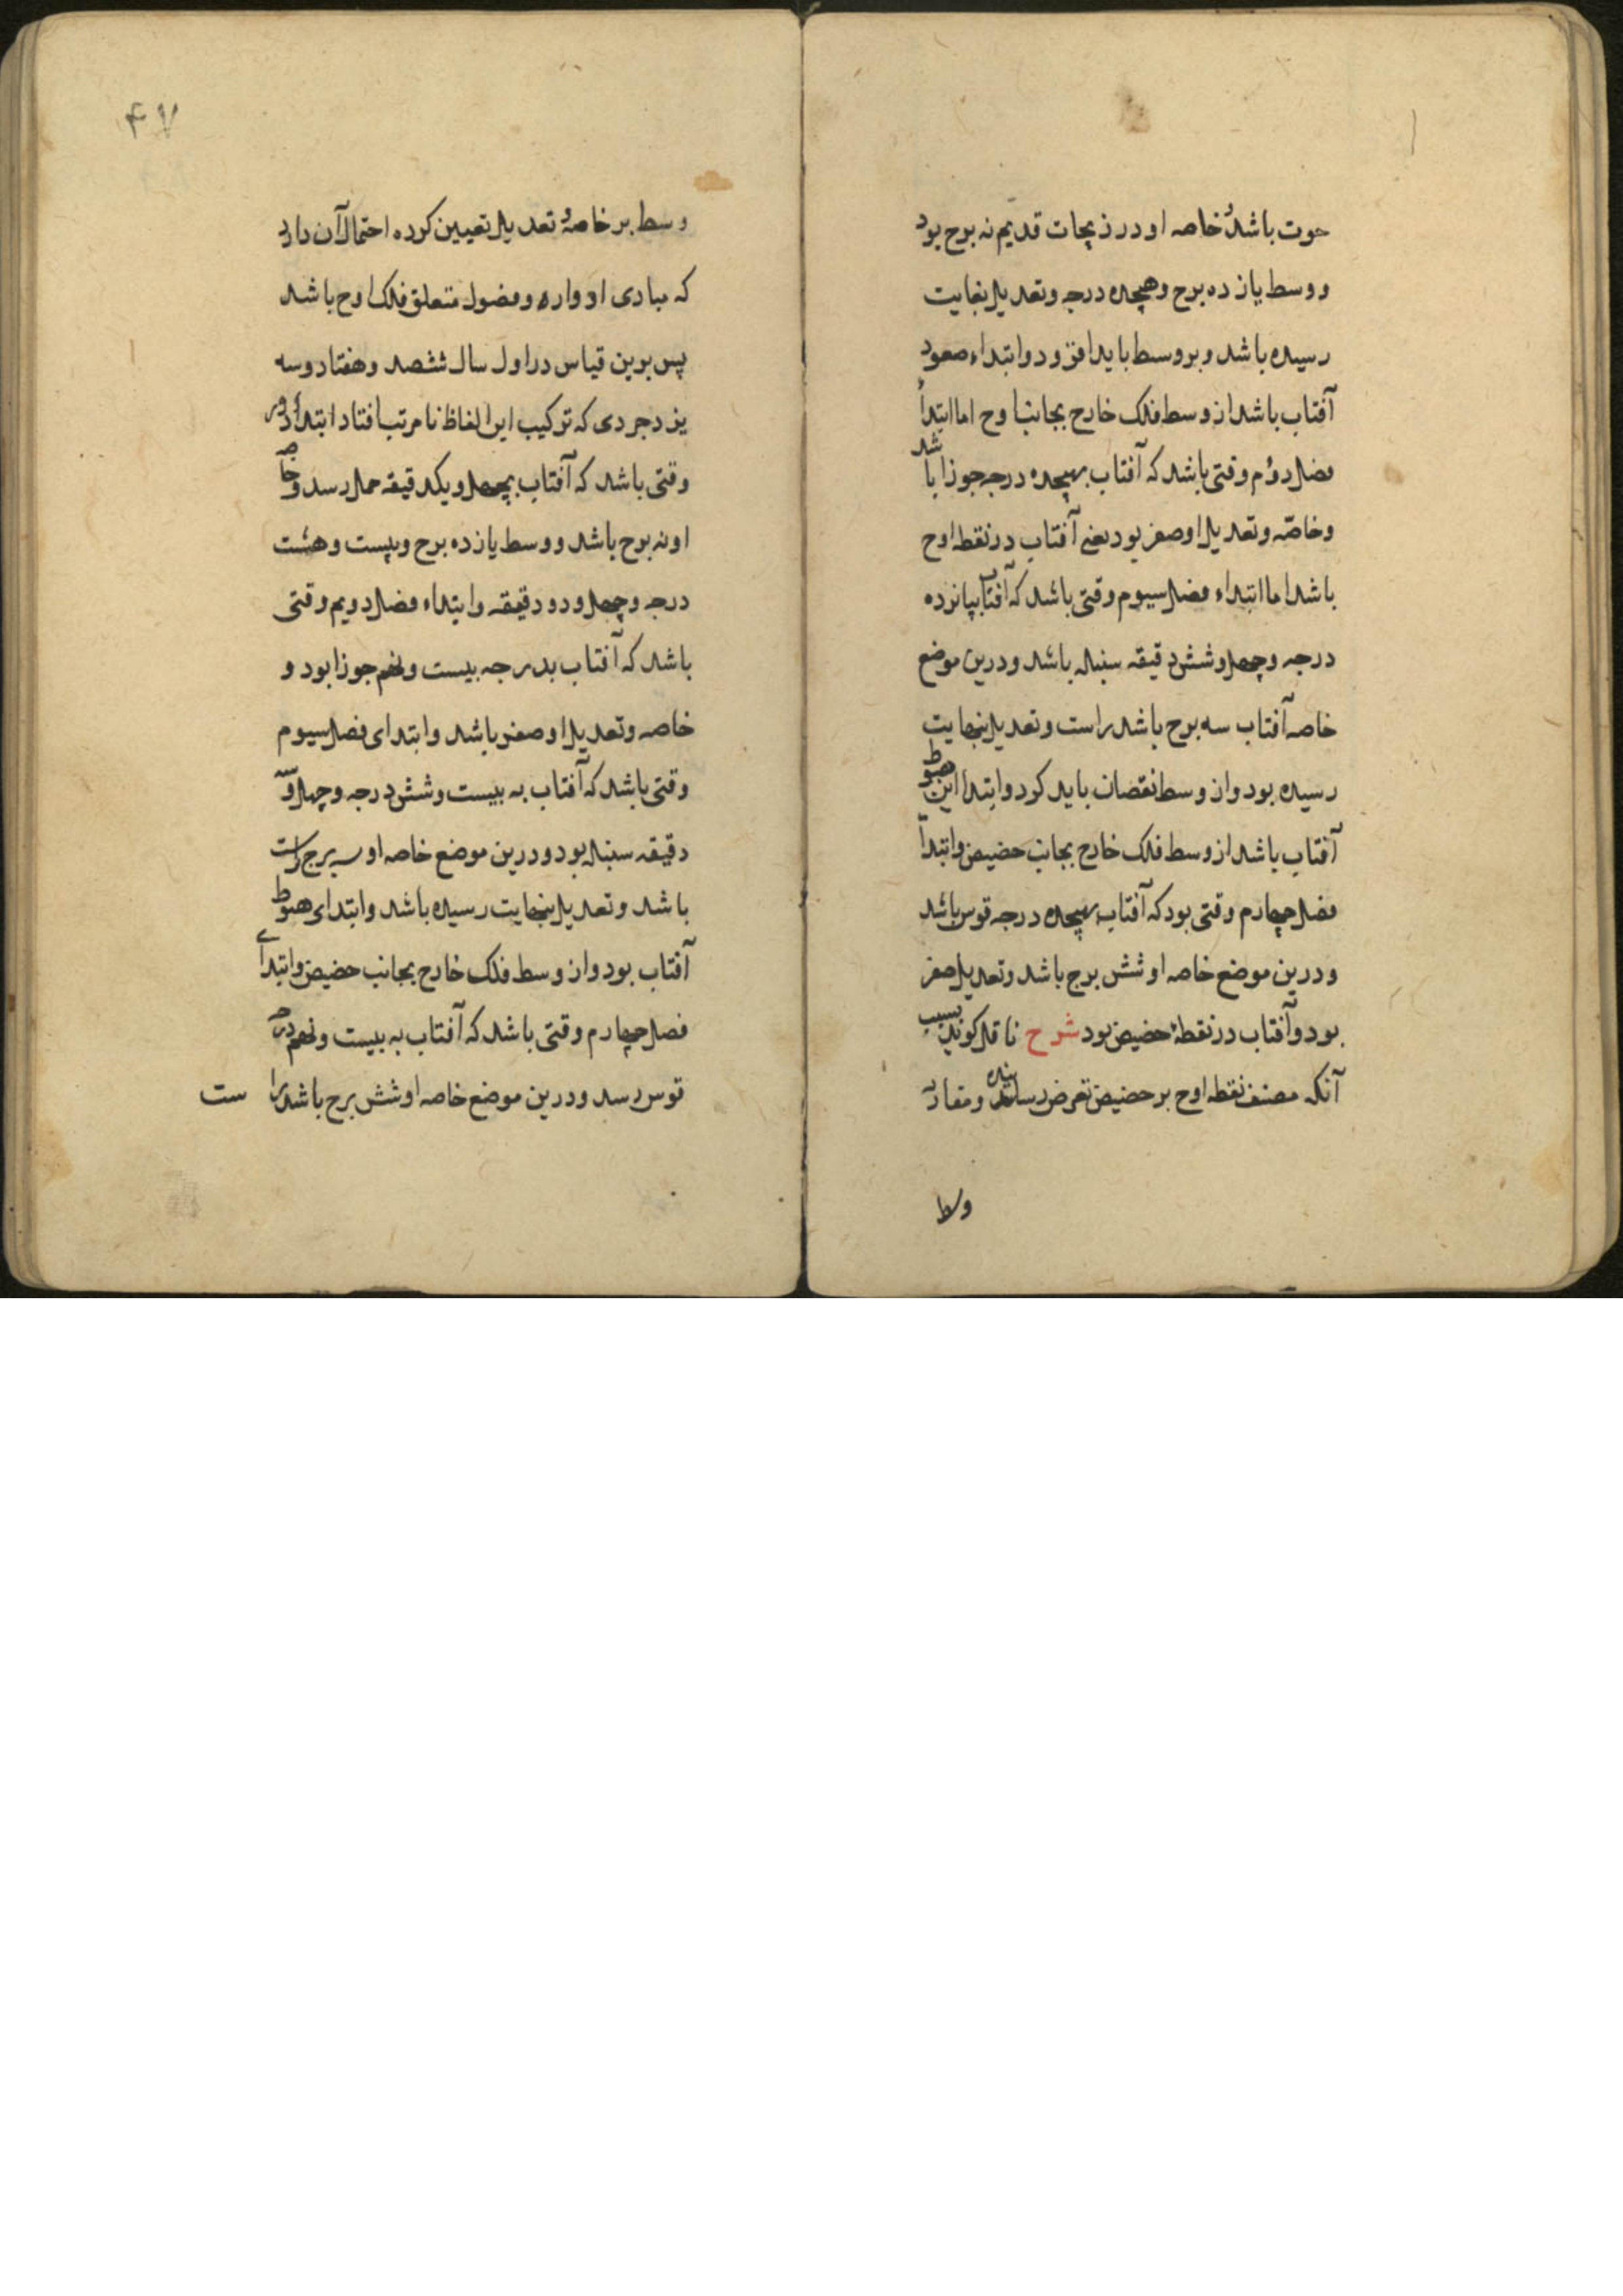 حوت باشد و خاصه او در زیجات قدیم نه برج بود
و وسط یازده برج و هیجده درجه و تعدیل بغایت
رسیده باشد و بر وسط باید افزود و ابتداء صعود
آفتاب باشد از وسط فلک خارج بجانب اوج اما ابتداء
فصل دوم وقتی باشد که آفتاب بهیجده درجه جوزا باشد
و خاصه و تعدیل او صفر بود یعنی آفتاب در نقطه اوج
باشد اما ابتداء فصل سیوم وقتی باشد که آفتاب بپانزده
درجه و چهل و شش دقیقه سنبله باشد و درین موضع
خاصه آفتاب سه برج باشد راست و تعدیل بنهایت
رسیده بود و از وسط نقصان باید کرد و ابتداء این هبوط
آفتاب باشد از وسط فلک خارج بجانب حضیض و ابتداء
فصل چهارم وقتی بود که آفتاب بهیجده درجه قوس باشد
و درین موضع خاصه او شش برج باشد و تعدیل صفر
بود و آفتاب در نقطهٔ حضیض بود شرح ناقل کوید بسبب
آنکه مصنف نقطه اوج بر حضیض تعرض رسانیده و مقادیر
وسط
۴۷
وسط بر خاصهٔ و تعدیل تعیین کرده احتمال آن دارد
که مبادی ادواره و فصول متعلق فلک اوج باشد
پس برین قیاس در اول سال ششصد و هفتاد و سه
یزدجردی که ترکیب این الفاظ نا مرتب افتاد ابتداء دور
وقتی باشد که آفتاب بچهل و یکدقیقه حمل رسد و خاصه
او نه برج باشد و وسط یازده برج و بیست و هشت
درجه و چهل و دو دقیقه و ابتداء فصل دویم وقتی
باشد که آفتاب بدرجه بیست و نهم جوزا بود و
خاصه و تعدیل او صفر باشد و ابتدای فصل سیوم
وقتی باشد که آفتاب به بیست و شش درجه و چهل و سه
دقیقه سنبله بود و درین موضع خاصه او سه برج راست
باشد و تعدیل بنهایت رسیده باشد و ابتدای هبوط
آفتاب بود و از وسط فلک خارج بجانب حضیض و ابتدای
فصل چهارم وقتی باشد که آفتاب به بیست و نهم درجه
قوس رسد و درین موضع خاصه او شش برج باشد راست